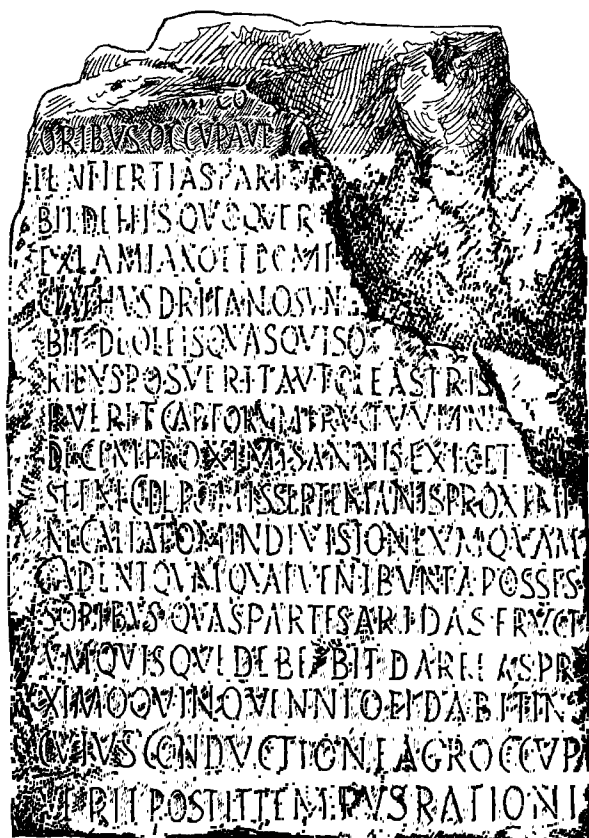 CO
ORIBVS OCCVPAVE
IENTIERTIASPARI
BIT DE HIS QVOQVE R
EX LAMIANO ET DOMI
CTAE THVSDRITANO SVN
BIT DE OLEIS QVAS QVISQ
RIBVS POSVERIT AVT OLEASTRIS
ERVERIT CAPTORVM FRVCTVVM NV
DECEM PROXIMIS ANNIS EXIGET
SET NEC DE POMIS SEPTEM ANIS PROXIMI
NEC ALIA POM IN DIVISIONE VMQVAM
CADENT QVAM QVAE VENIBVNT A POSSES
SORIBVS QVAS PARTES ARIDAS FRVCT
VM QVISQVE DEBEBIT DARE EAS PR
XIMO QVINQVENNIO EI DABIT IN
CVIVS CONDVCTIONE AGR OCCVPA
VERIT POST IT TEMPVS RATIONI